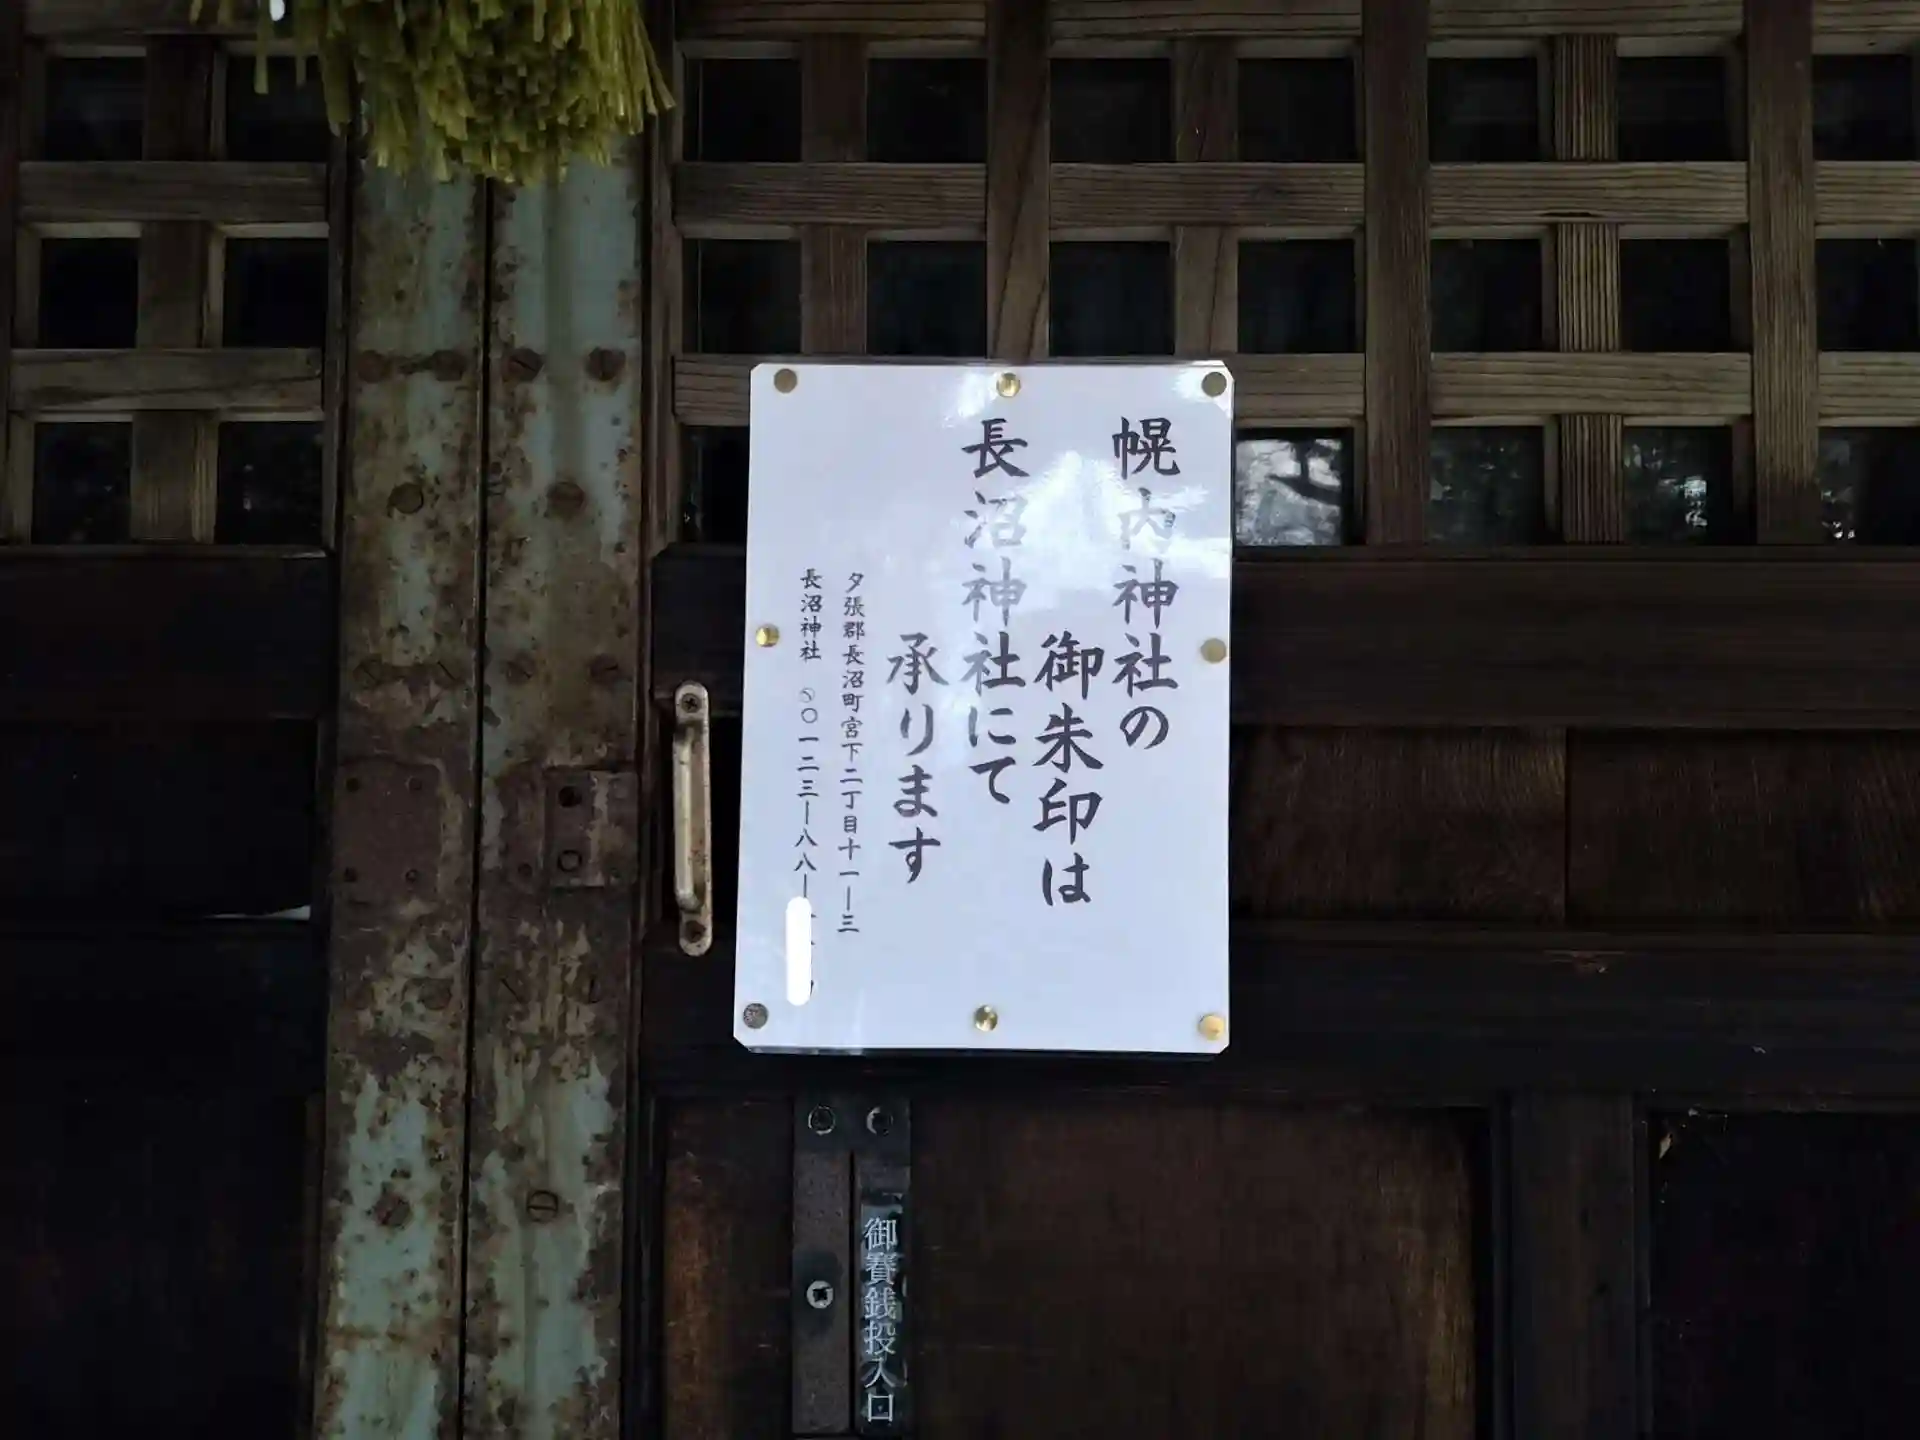 幌内神社の
御朱印は
長沼神社にて
承ります
夕張郡長沼町宮下二丁目十一―三
長沼神社 ✆〇一二三―八八―
御賽銭投入口